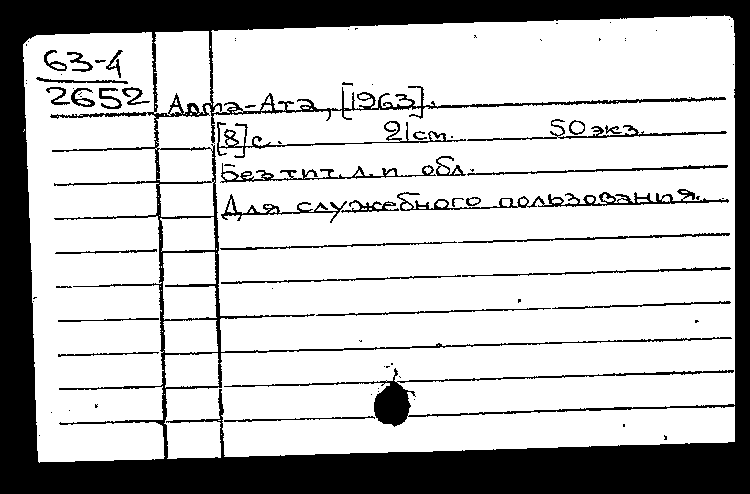 63-4
2652
Алма-Ата, [1963].
[8] с. 21 см. 50 экз.
Без тит. л. и обл.
Для служебного пользования.